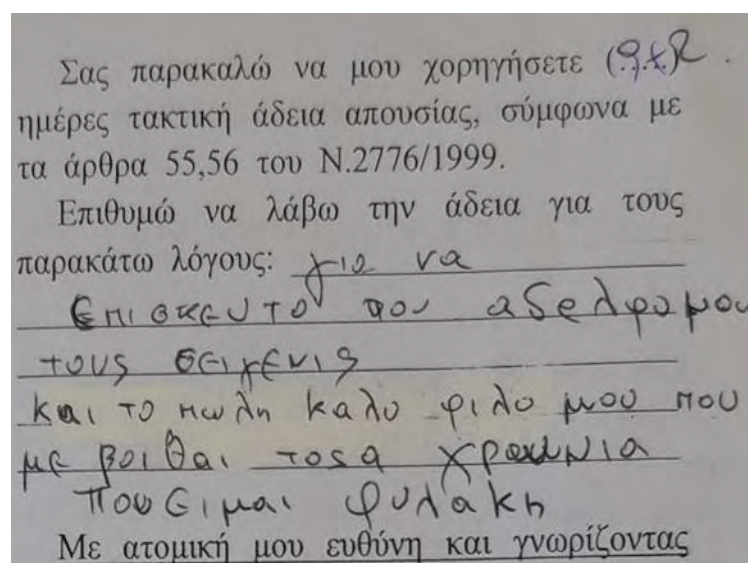 Σας παρακαλώ να μου χορηγήσετε
ημέρες τακτική άδεια απουσίας, σύμφωνα με
τα άρθρα 55,56 του Ν.2776/1999.
Επιθυμώ να λάβω την άδεια για τους
παρακάτω λόγους: για να
επισκευτο τον αδελφο μου
τους σειγενις
και το πωλη καλο φιλο μου που
με βοιθαι τοσα χρωνια
που ειμαι φυλακη
Με ατομική μου ευθύνη και γνωρίζοντας